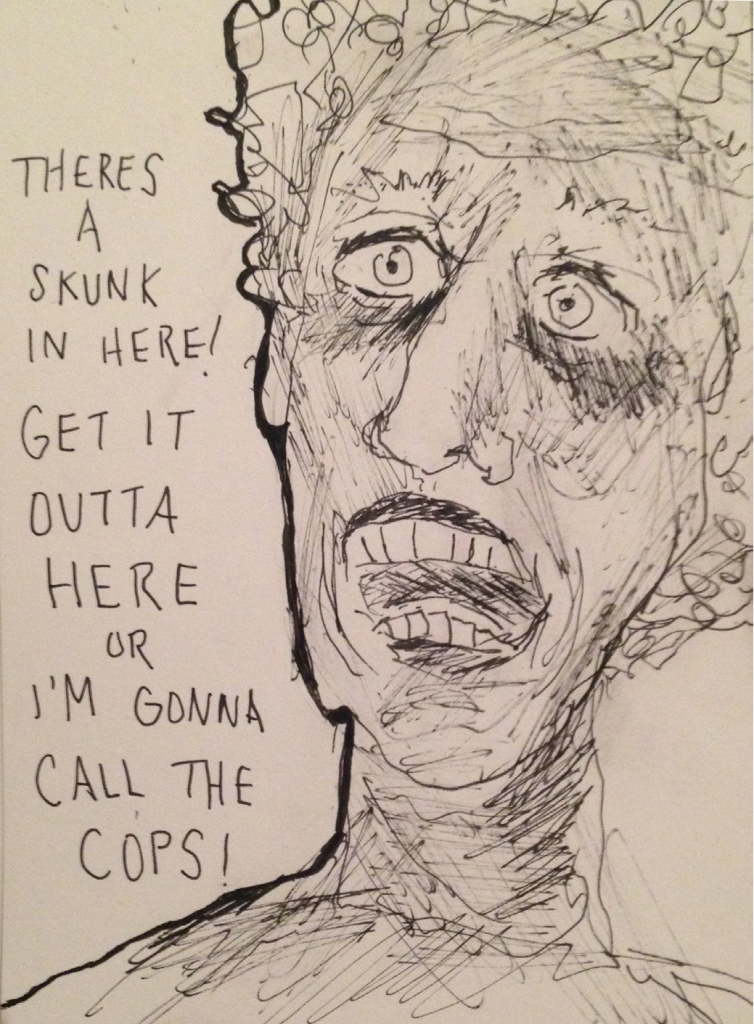 THERES
A
SKUNK
IN HERE!
GET IT
OUTTA
HERE
OR
I'M GONNA
CALL THE
COPS!